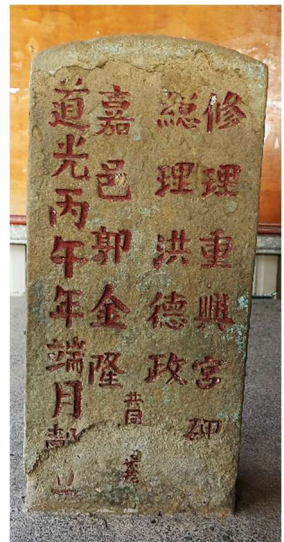 修理重興宮碑
總理洪德政
嘉邑郭金隆
共同
道光丙午年端月